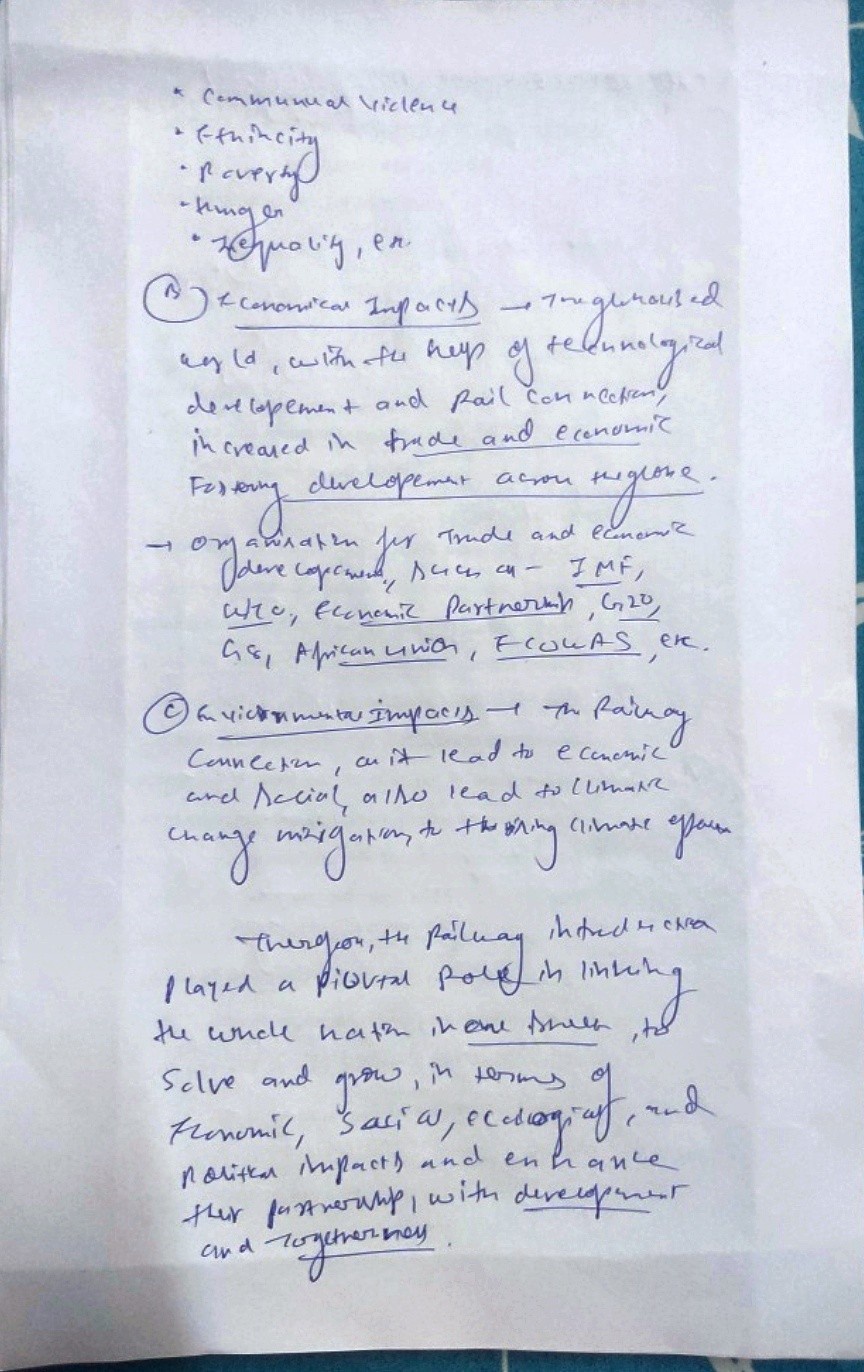 * Communual Violence
• Ethinicity
• Poverty
• Hunger
• Inequality, etc.
(B) Economical Impacts → The globalised
world, with the help of technological
developement and Rail connection,
increased in trade and economic
Fostering developement across the globe.
→ Organisation for Trade and economic
developement, such as - IMF,
WTO, Economic Partnership, G20,
G8, African union, ECOWAS, etc.
(C) Environmental Impacts → The Railway
Connection, as it lead to economic
and Social, also lead to climate
change mitigation, to the climate
Therefore, the Railway introduction
Played a Pivotal Role in linking
the whole nation in one , to
Solve and grow, in terms of
Economic, Social, ecological, and
political impacts and enhance
their partnership, with development
and Togetherness.